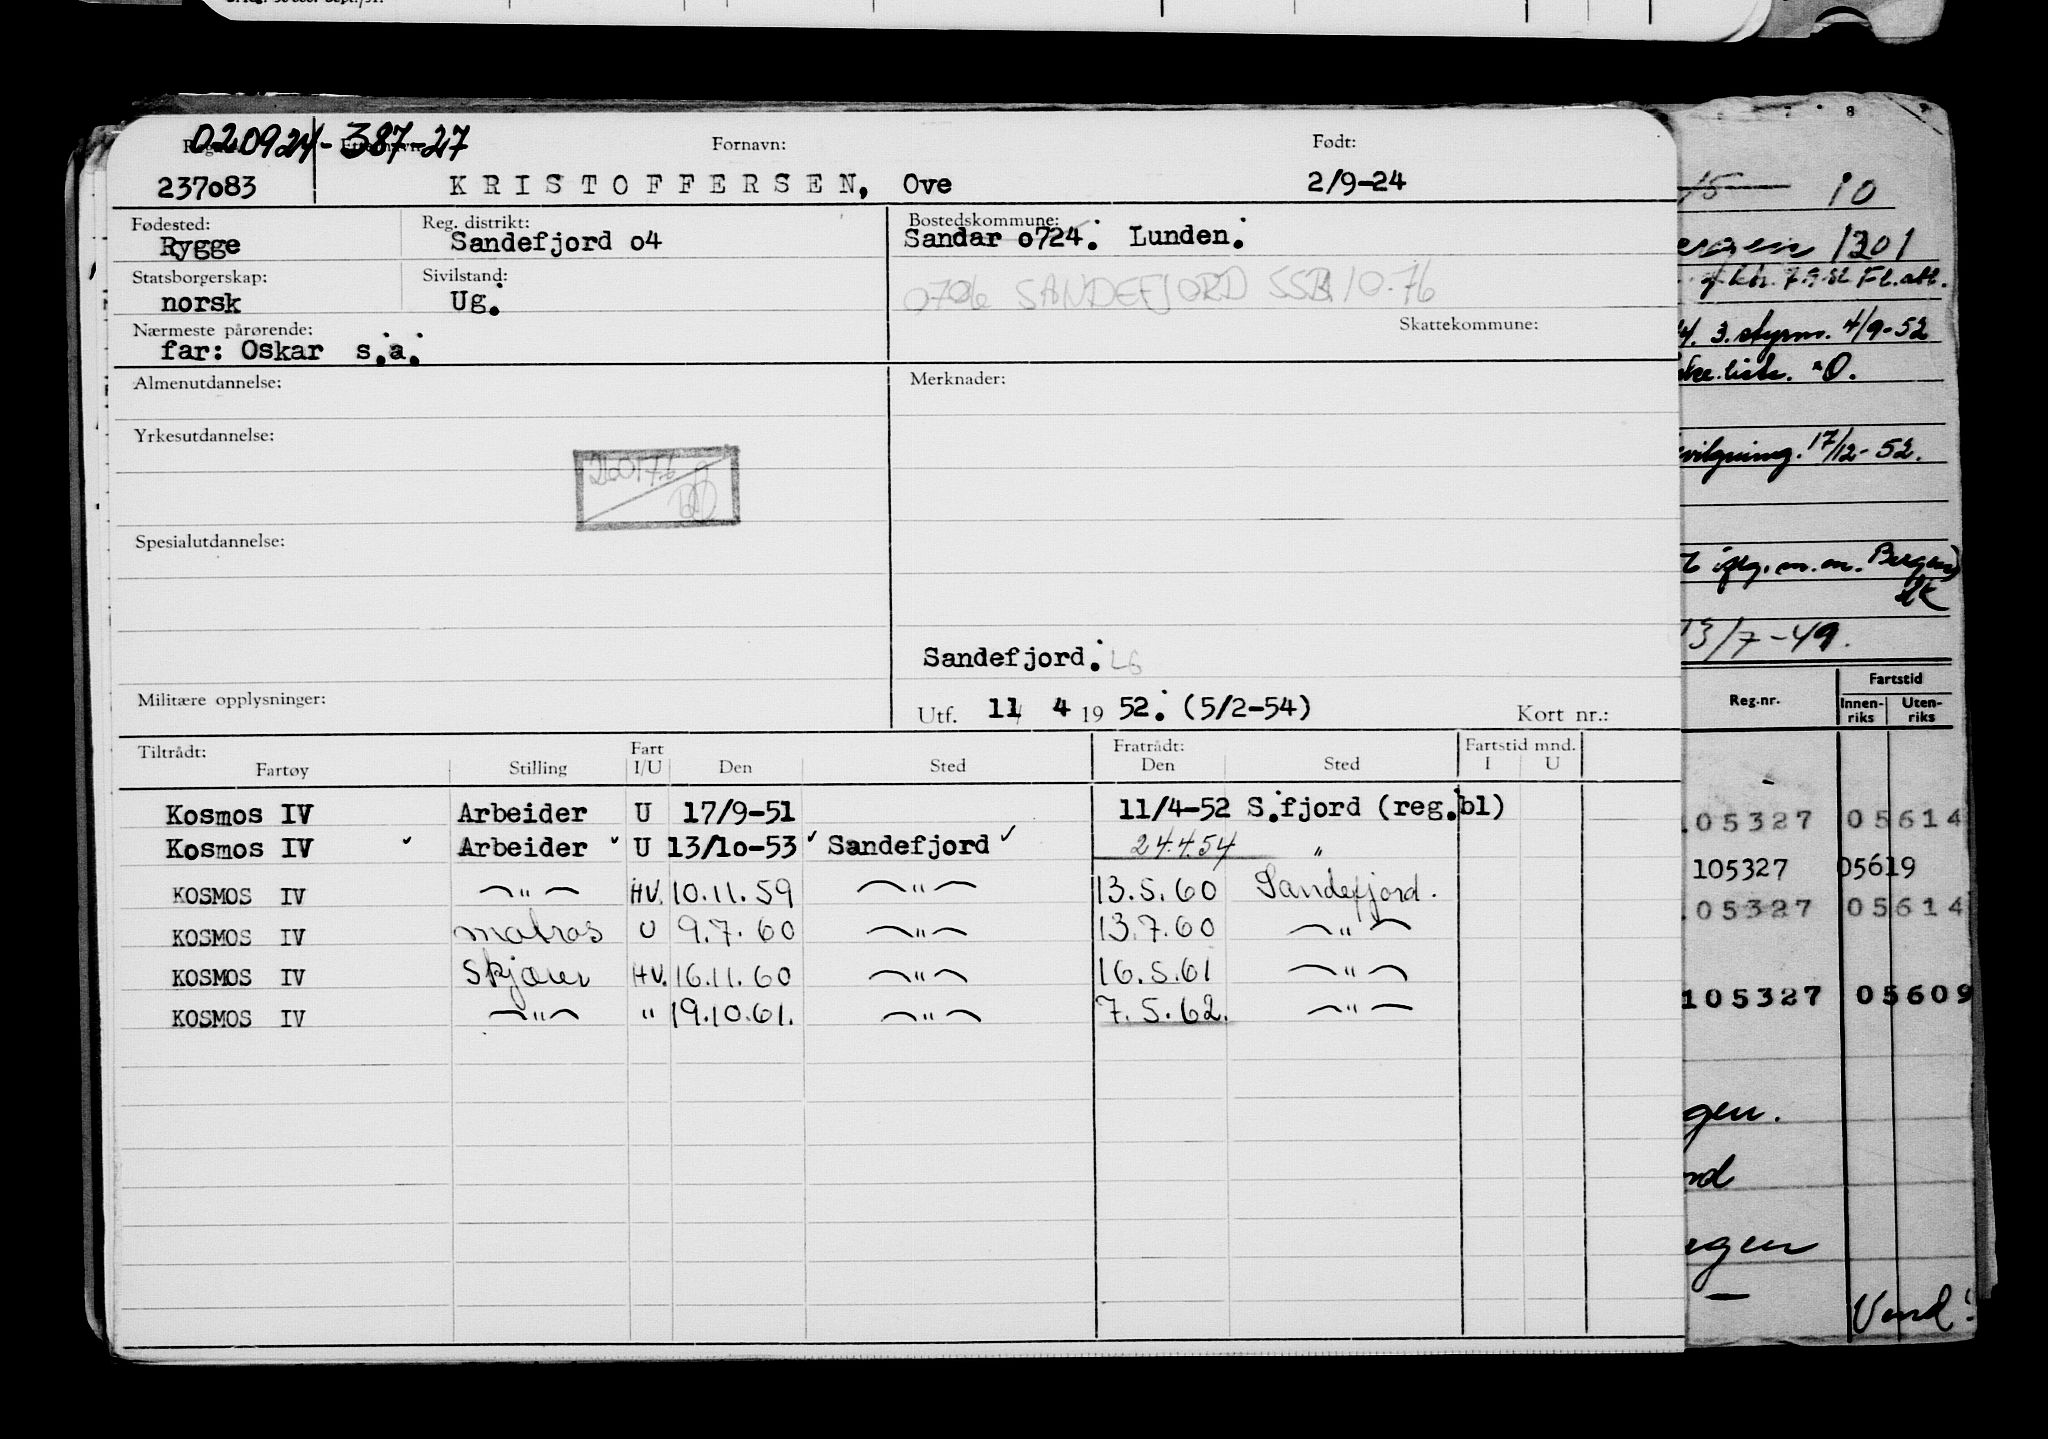 020924-387-27
Fornavn: Født:
237o83 KRISTOFFERSEN, Ove 2/9-24
Fødested: Reg. distrikt: Bostedskommune:
Rygge Sandefjord o4 Sandar o724. Lunden.
Statsborgerskap: Sivilstand:
norsk Ug. 0706 SANDEFJORD SSB 10-76
Nærmeste pårørende: Skattekommune:
far: Oskar s.a.
Almenutdannelse: Merknader:
Yrkesutdannelse:
260176
Spesialutdannelse:
Sandefjord. LG
Militære opplysninger: Utf. 11 4 19 52. (5/2-54) Kort nr.:
Tiltrådt: Fart Fratrådt: Fartstid mnd.
Fartøy Stilling I/U Den Sted Den Sted I U
Kosmos IV Arbeider U 17/9-51 11/4-52 S.fjord (reg.bl)
Kosmos IV ✓ Arbeider ✓ U 13/1o-53 ✓ Sandefjord ✓ 24.4.54 "
KOSMOS IV —"— HV. 10.11.59 —"— 13.5.60 Sandefjord.
KOSMOS IV matros U 9.7.60 —"— 13.7.60 —"—
KOSMOS IV Skjærer HV. 16.11.60 —"— 16.5.61 —"—
KOSMOS IV —"— " 19.10.61. —"— 7.5.62. —"—
7 8
15 10
1301
7.9.51 Fl.att.
3. styrm. 4/9-52
17/12-52.
m.m. Bergen
13/7-49.
Reg.nr. Fartstid
Innen-riks Uten-riks
05327 05614
105327 05619
05327 05614
105327 05609
gen.
Vend!